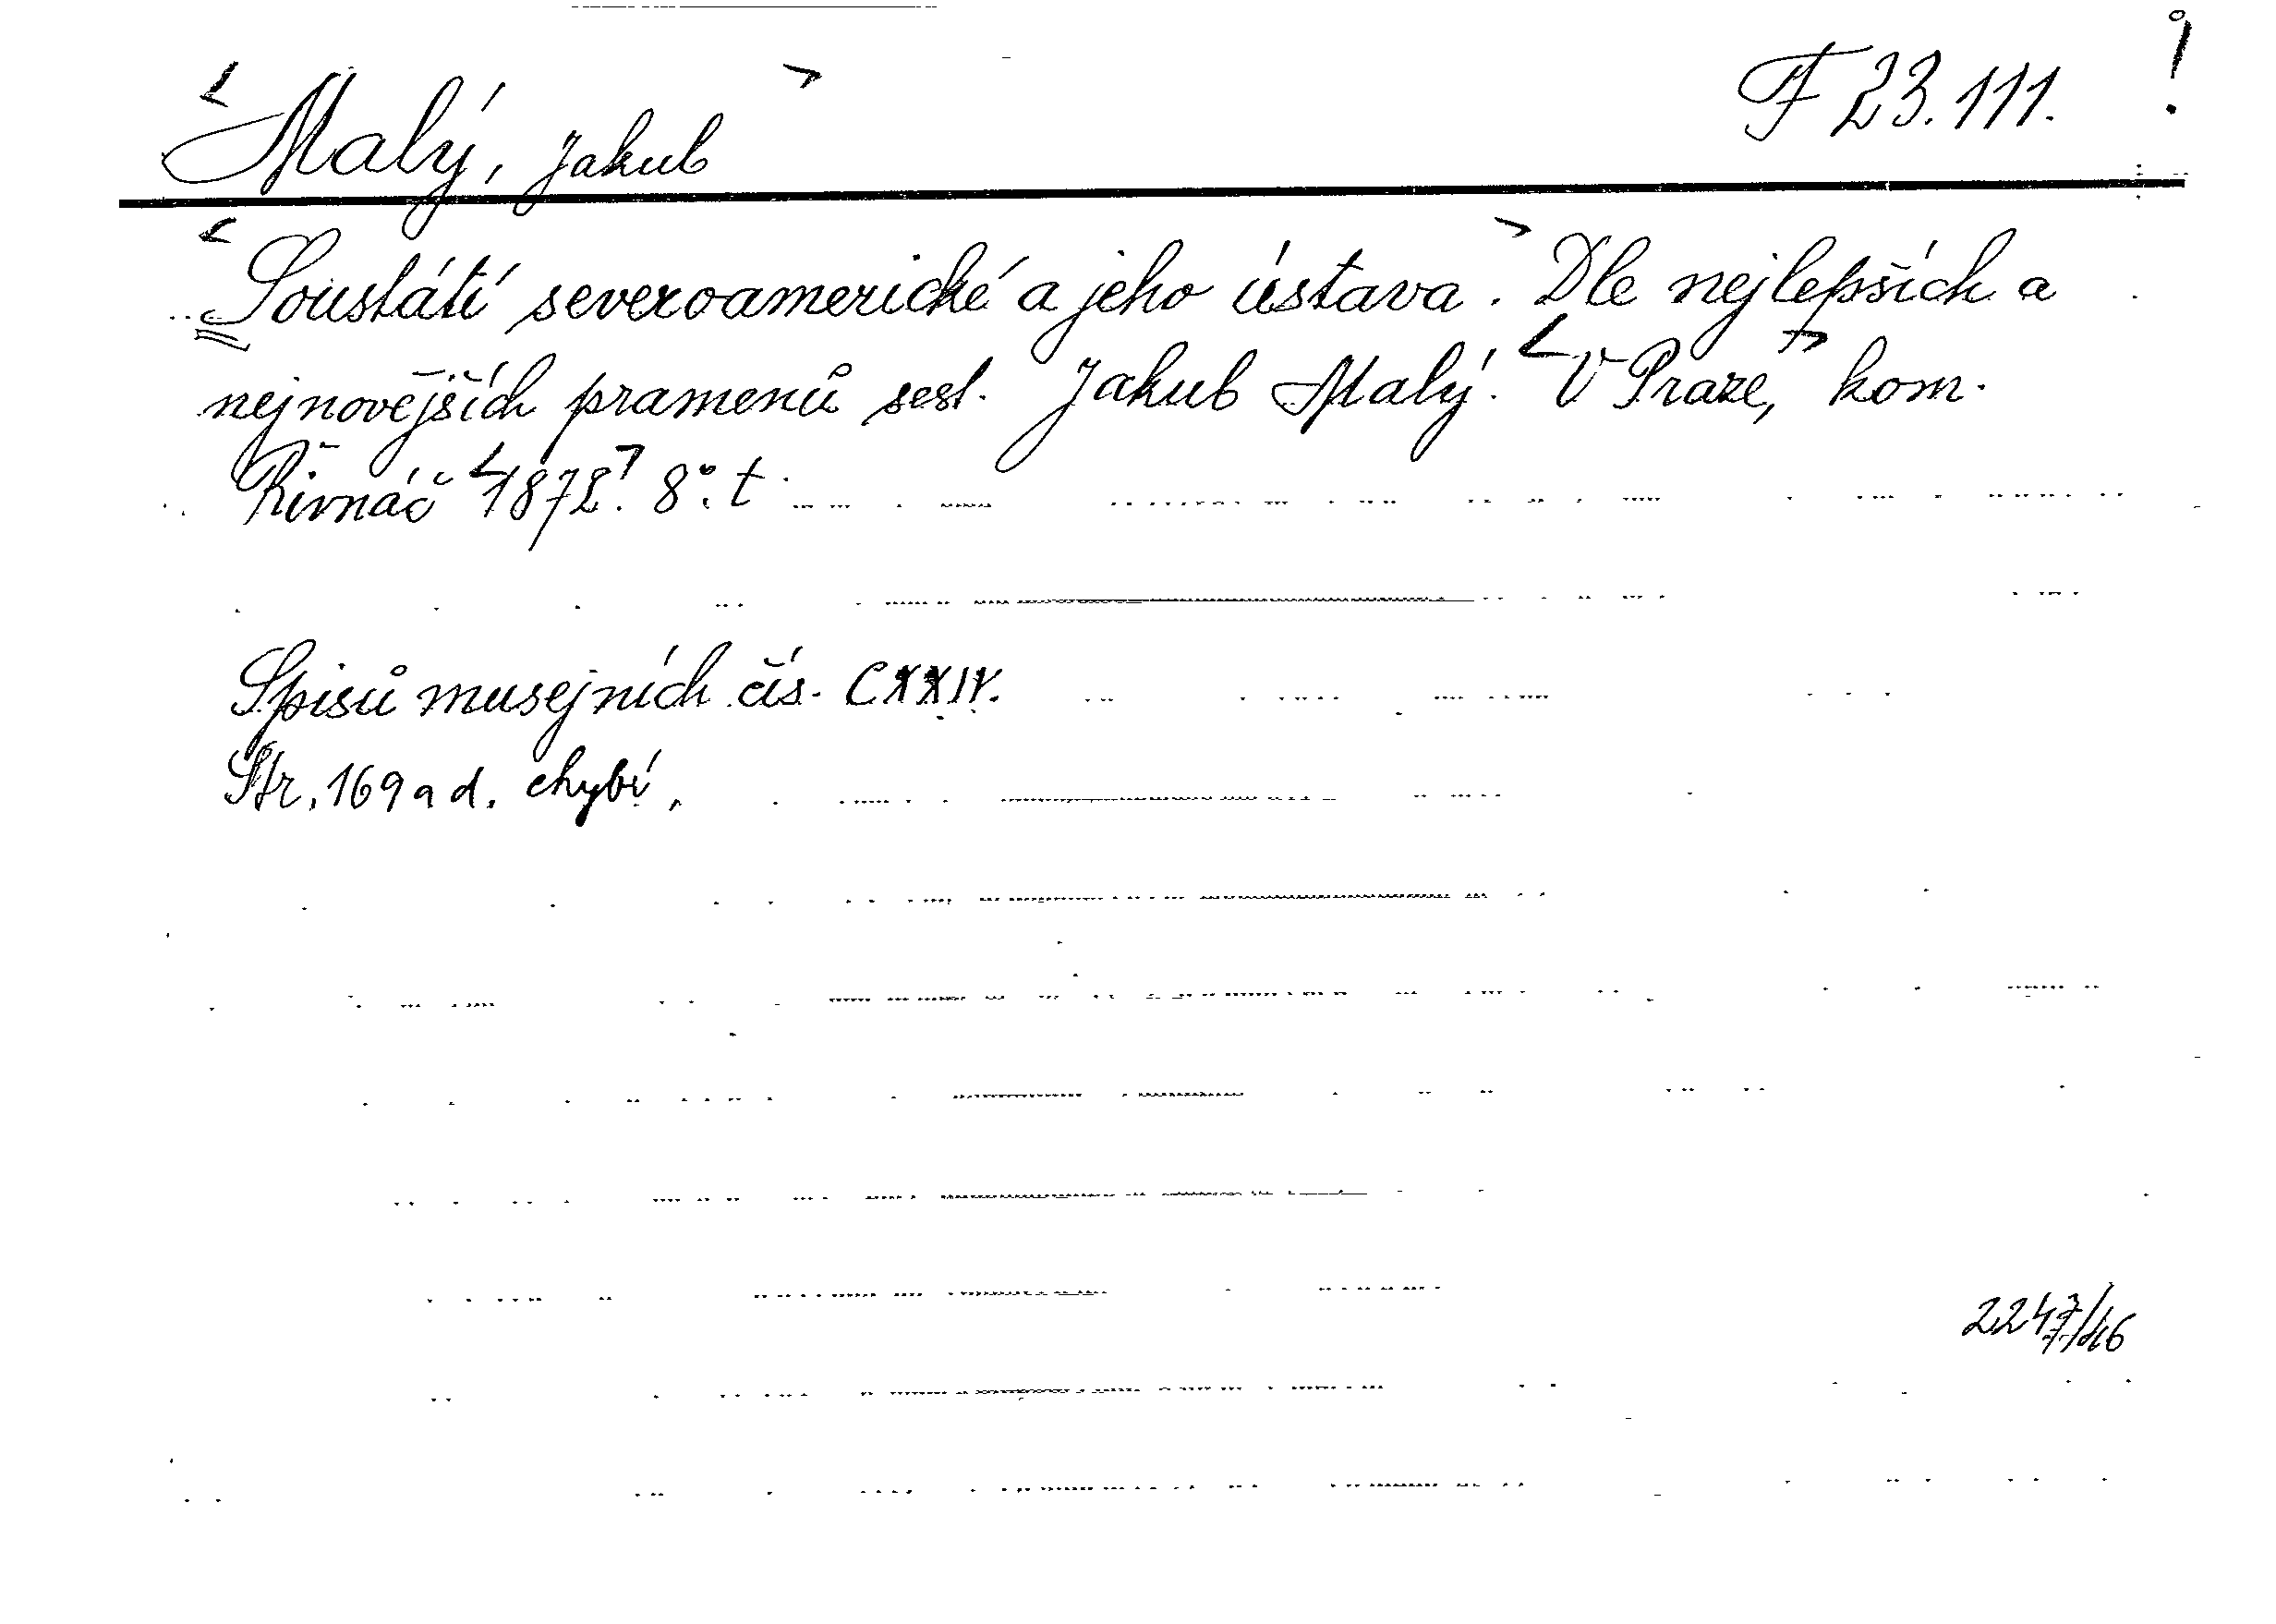 Malý, Jakub F 23.111. !
Soustátí severoamerické a jeho ústava. Dle nejlepších a
nejnovějších pramenů sest. Jakub Malý. V Praze, kom.
Řivnáč 1872. 8°. t.
Spisů musejních čís. CXXIV.
Str. 169 a d. chybí.
2247/46